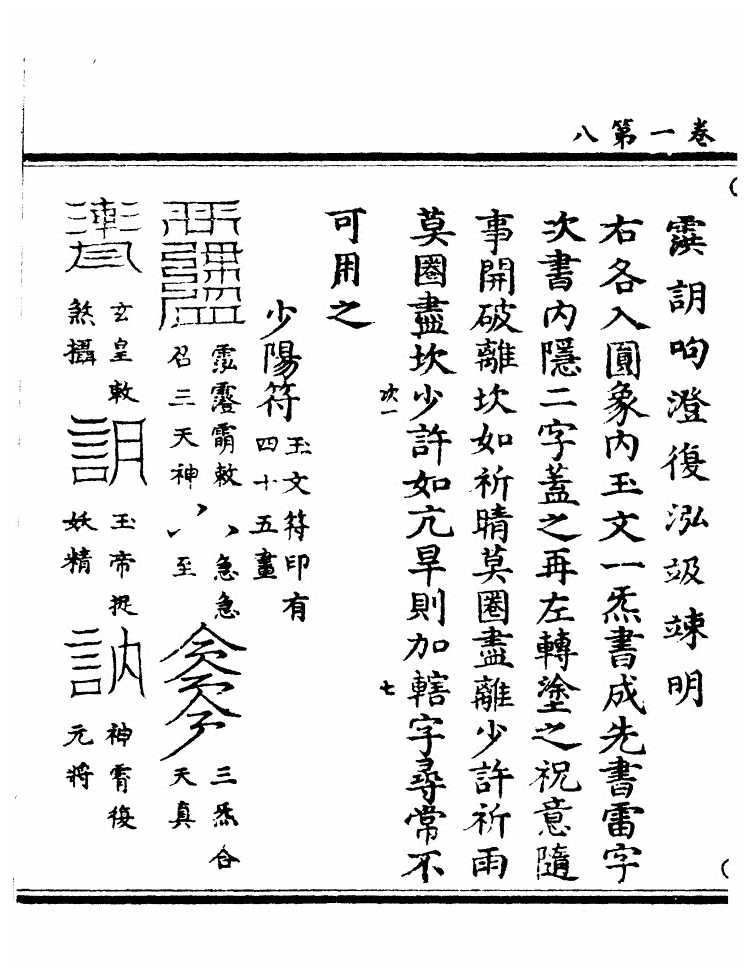 卷一第八
詷呴澄復泓竐竦明
右各入圓象內玉文一炁書成先書雷字
次書內隱二字蓋之再左轉塗之祝意隨
事開破離坎如祈晴莫圈盡離少許祈雨
莫圈盡坎少許如亢旱則加轄字尋常不
可用之
坎一
七
少陽符
玉文符印有
四十五畫
敕
急急
召三天神
至
三炁合
天真
玄皇敕
煞攝
玉帝捉
妖精
神霄復
元將